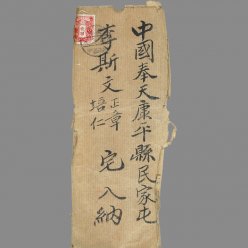 中國奉天康平縣民家屯
李斯文正章
培仁
宅入納